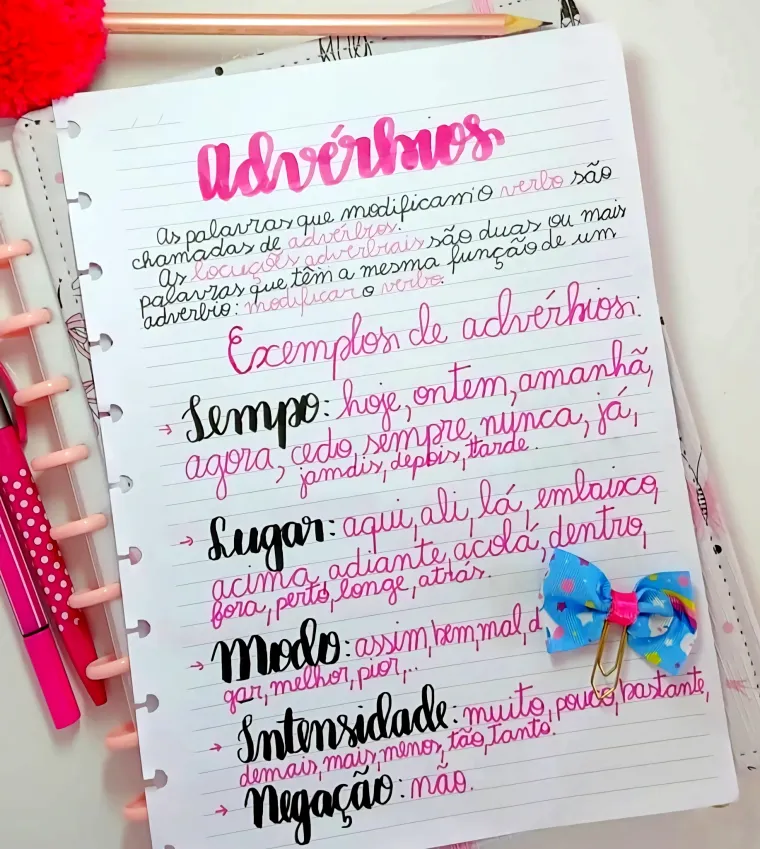 Advérbios
As palavras que modificam o verbo são
chamadas de advérbios.
As locuções adverbiais são duas ou mais
palavras que têm a mesma função de um
advérbio: modificar o verbo.
Exemplos de advérbios:
→ Tempo: hoje, ontem, amanhã,
agora, cedo, sempre, nunca, já,
jamais, depois, tarde.
→ Lugar: aqui, ali, lá, embaixo,
acima, adiante, acolá, dentro,
fora, perto, longe, atrás.
→ Modo: assim, bem, mal, d
gar, melhor, pior,...
→ Intensidade: muito, pouco, bastante,
demais, mais, menos, tão, tanto.
→ Negação: não.